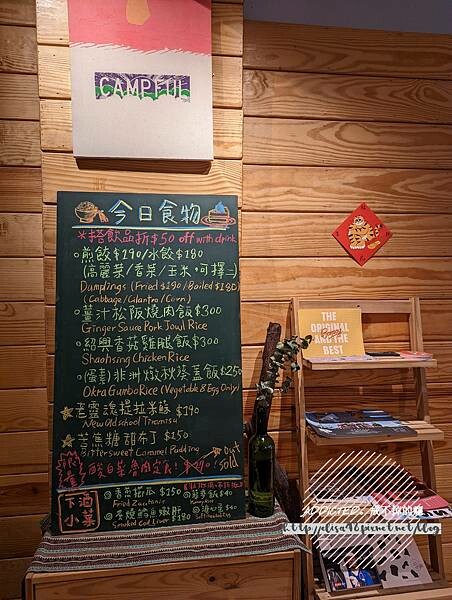 CAMPFUL
今日食物
*搭飲品折$50 off with drink
煎餃$190/水餃$180
(高麗菜/香菜/玉米,可擇一)
Dumplings (Fried $190/Boiled $180)
(Cabbage/Cilantro/Corn)
薑汁松阪燒肉飯$300
Ginger Sauce Pork Jowl Rice
紹興香菇雞腿飯$300
Shaohsing Chicken Rice
(優素)非洲燉秋葵蓋飯$250
Okra Gumbo Rice (Vegetable & Egg Only)
老靈魂提拉米蘇 $190
New Old school Tiramisu
苦焦糖甜布丁 $150
Bittersweet Caramel Pudding
酸白菜魯肉飯!
sold out
下酒小菜
$150
煙燻鱈魚嫩肝
Smoked Cod Liver $180
THE
ORIGINAL
AND THE
BEST
ADDICTED. 戒不掉的癮
http://elisa98.pixnet.net/blog